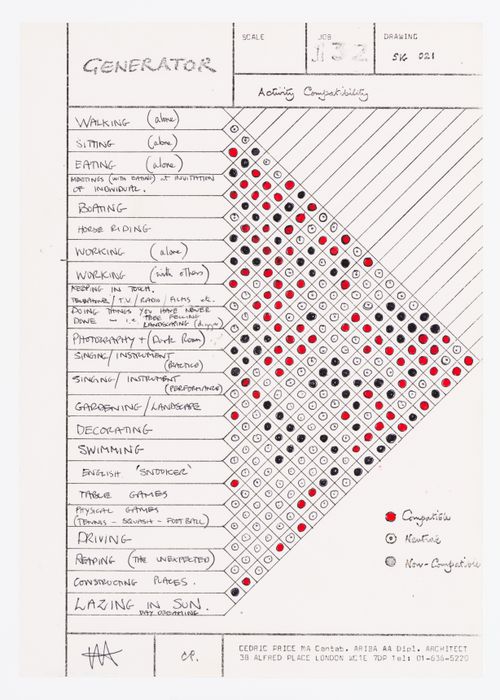 GENERATOR
SCALE
JOB
132
DRAWING
SK 021
Activity Compatibility
WALKING (alone)
SITTING (alone)
EATING (alone)
MEETINGS (WITH EATING) at INVITATION
OF INDIVIDUAL.
BOATING
HORSE RIDING
WORKING (alone)
WORKING (with others)
KEEPING IN TOUCH,
/ T.V./ RADIO/ FILMS etc.
DOING THINGS YOU HAVE NEVER
DONE - i.e. TREE FELLING
LANDSCAPING
PHOTOGRAPHY + (Dark Room)
SINGING/ INSTRUMENT
(PRACTICE)
SINGING/ INSTRUMENT
(PERFORMANCE)
GARDENING / LANDSCAPE
DECORATING
SWIMMING
ENGLISH 'SNOOKER'
TABLE GAMES
PHYSICAL GAMES
(TENNIS - SQUASH - FOOTBALL)
DRIVING
READING (THE UNEXPECTED)
CONSTRUCTING PLACES.
LAZING IN SUN.
DAY DREAMING
Compatible
Neutral
Non-Compatible
CP.
CEDRIC PRICE MA Cantab. ARIBA AA Dipl. ARCHITECT
38 ALFRED PLACE LONDON WC1E 7DP Tel: 01-636-5220